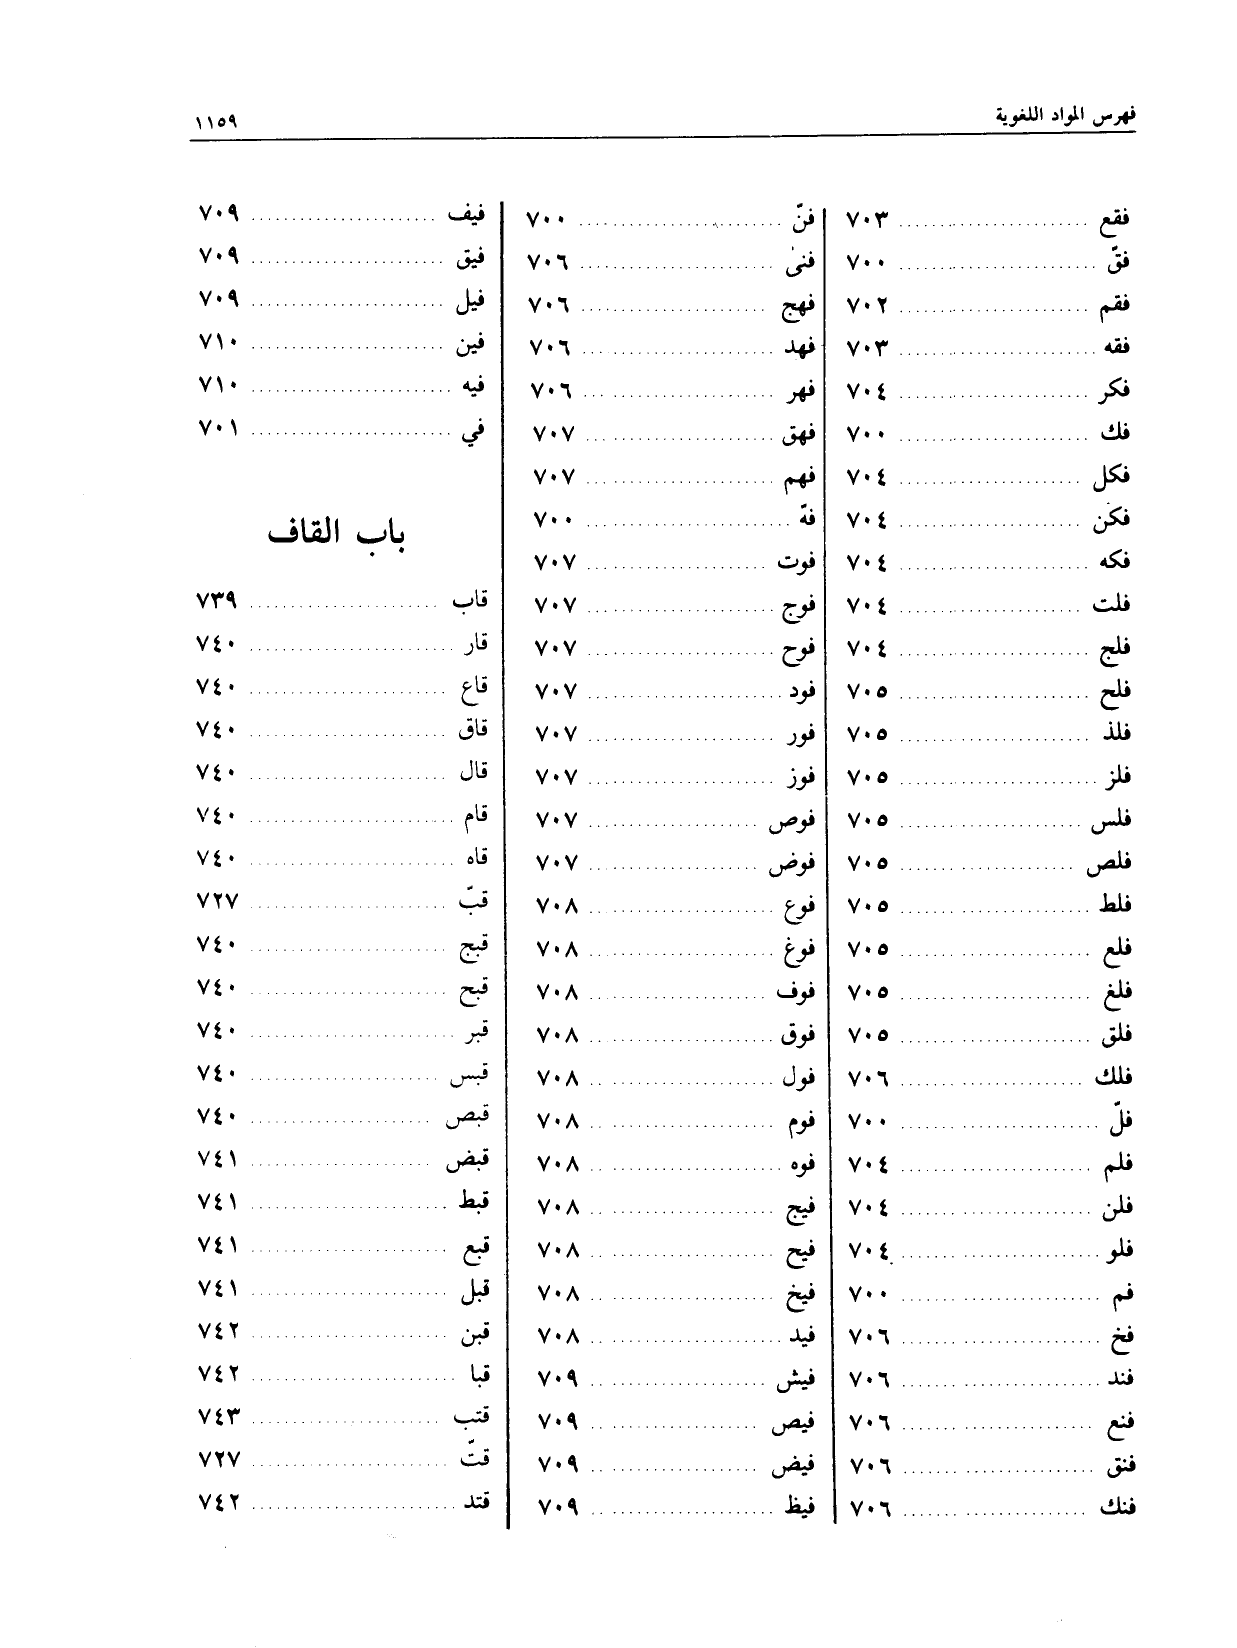 فهرس المواد اللغوية ١١٥٩
فقع ٧٠٣
فقّ ٧٠٠
فقم ٧٠٢
فقه ٧٠٣
فكر ٧٠٤
فك ٧٠٠
فكل ٧٠٤
فكن ٧٠٤
فكه ٧٠٤
فلت ٧٠٤
فلج ٧٠٤
فلح ٧٠٥
فلذ ٧٠٥
فلز ٧٠٥
فلس ٧٠٥
فلص ٧٠٥
فلط ٧٠٥
فلع ٧٠٥
فلغ ٧٠٥
فلق ٧٠٥
فلك ٧٠٦
فلّ ٧٠٠
فلم ٧٠٤
فلن ٧٠٤
فلو ٧٠٤
فم ٧٠٠
فخ ٧٠٦
فند ٧٠٦
فنع ٧٠٦
فنق ٧٠٦
فنك ٧٠٦
فنّ ٧٠٠
فنى ٧٠٦
فهج ٧٠٦
فهد ٧٠٦
فهر ٧٠٦
فهق ٧٠٧
فهم ٧٠٧
فهّ ٧٠٠
فوت ٧٠٧
فوج ٧٠٧
فوح ٧٠٧
فود ٧٠٧
فور ٧٠٧
فوز ٧٠٧
فوص ٧٠٧
فوض ٧٠٧
فوع ٧٠٨
فوغ ٧٠٨
فوف ٧٠٨
فوق ٧٠٨
فول ٧٠٨
فوم ٧٠٨
فوه ٧٠٨
فيج ٧٠٨
فيح ٧٠٨
فيخ ٧٠٨
فيد ٧٠٨
فيش ٧٠٩
فيص ٧٠٩
فيض ٧٠٩
فيظ ٧٠٩
فيف ٧٠٩
فيق ٧٠٩
فيل ٧٠٩
فين ٧١٠
فيه ٧١٠
في ٧٠١
باب القاف
قاب ٧٣٩
قار ٧٤٠
قاع ٧٤٠
قاق ٧٤٠
قال ٧٤٠
قام ٧٤٠
قاه ٧٤٠
قبّ ٧٢٧
قبج ٧٤٠
قبح ٧٤٠
قبر ٧٤٠
قبس ٧٤٠
قبص ٧٤٠
قبض ٧٤١
قبط ٧٤١
قبع ٧٤١
قبل ٧٤١
قبن ٧٤٢
قبا ٧٤٢
قتب ٧٤٣
قتّ ٧٢٧
قتد ٧٤٢